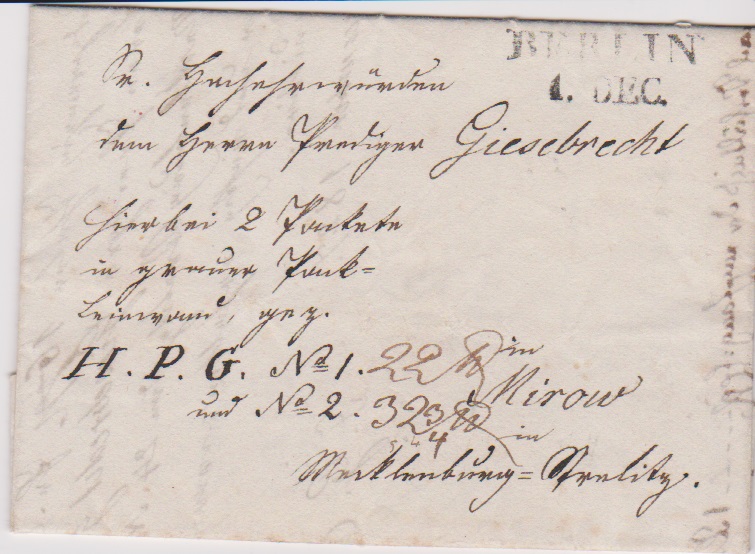 BERLIN
1. DEC.
Sr. Hochehrwürden
dem Herrn Prediger Giesebrecht
Hierbei 2 Packete
in grauer Pack=
Leinwand, gez.
H. P. G. No 1. 22 ℔ in
Mirow
und No 2. 32 3/4 ℔
in
Mecklenburg=Strelitz.